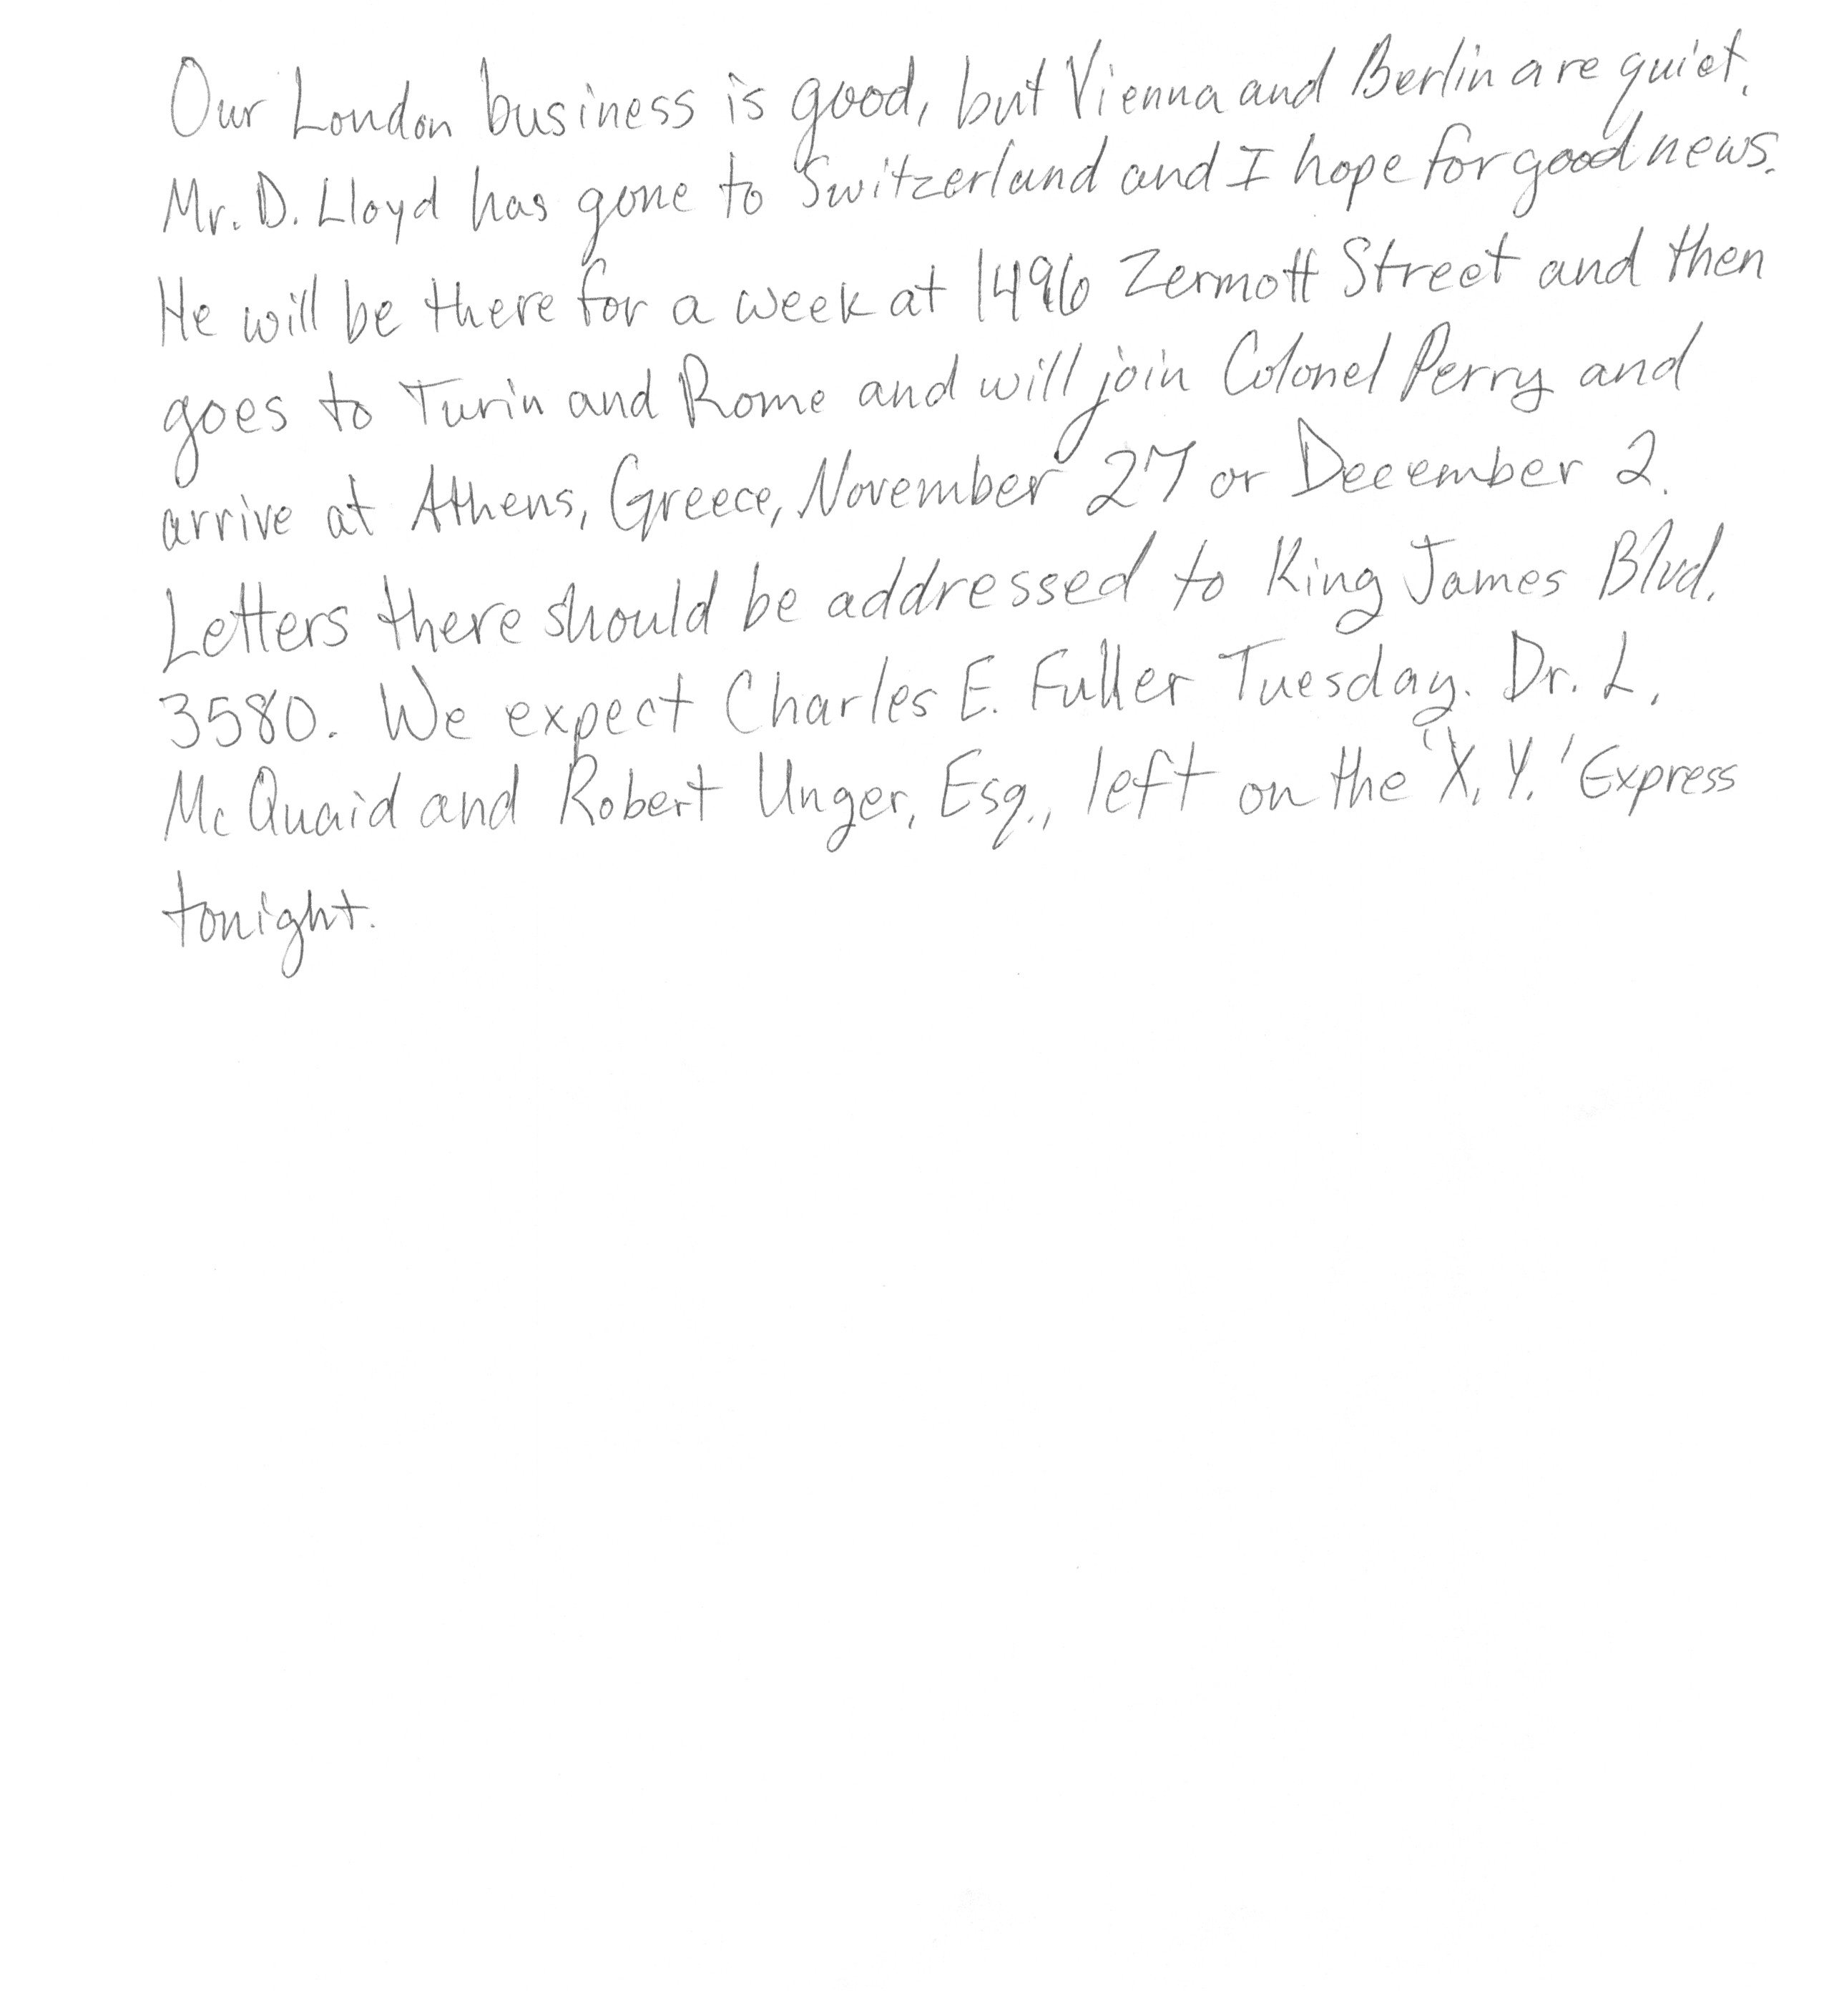 Our London business is good, but Vienna and Berlin are quiet.
Mr. D. Lloyd has gone to Switzerland and I hope for good news.
He will be there for a week at 1496 Zermott Street and then
goes to Turin and Rome and will join Colonel Perry and
arrive at Athens, Greece, November 27 or December 2.
Letters there should be addressed to King James Blvd.
3580. We expect Charles E. Fuller Tuesday. Dr. L.
McQuaid and Robert Unger, Esq., left on the 'X.Y.' Express
tonight.